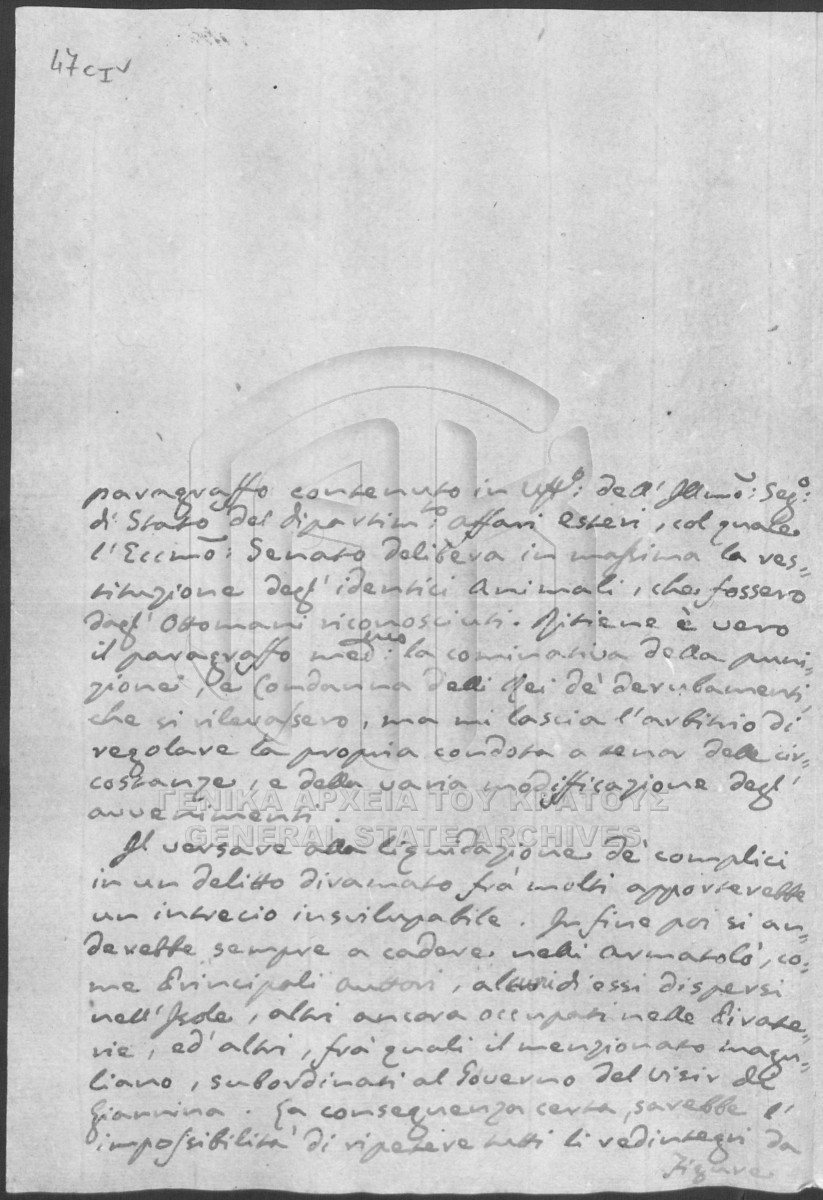 47 c I v
paragrafo contenuto in Uff.o: dell' Illmo: Seg.o:
di Stato del dipartim.to: affari esteri, col quale
l' Eccmo: Senato delibera in massima la res-
tituzione degl' identici Animali, che fossero
dagl' Ottomani riconosciuti. Ritiene è vero
il paragraffo med.mo: la cominativa della puni-
zione, e Condanna delli Rei de' derubamenti,
che si rilevassero, ma mi lascia l'arbitrio di
regolare la propria condota a tenor delle cir-
costanze, e della varia modifficazione degl'
avvenimenti.
Il versare alla liquidazione de' complici
in un delitto diramato frà molti apporterebbe
un intrecio insvilupabile. Infine poi si an-
derebbe sempre a cadere nelli Armatolò, co-
me Principali auttori, altri d'essi dispersi
nell' Isole, altri ancora occupati nelle Pirate-
rie, ed' altri, frà quali il menzionato Magu-
liano, subordinati al Governo del Visir de
Giannina. La conseguenza certa sarebbe l'
impossibilità di ripetere tutti li redintegri da
figure
ΓΕΝΙΚΑ ΑΡΧΕΙΑ ΤΟΥ ΚΡΑΤΟΥΣ
GENERAL STATE ARCHIVES